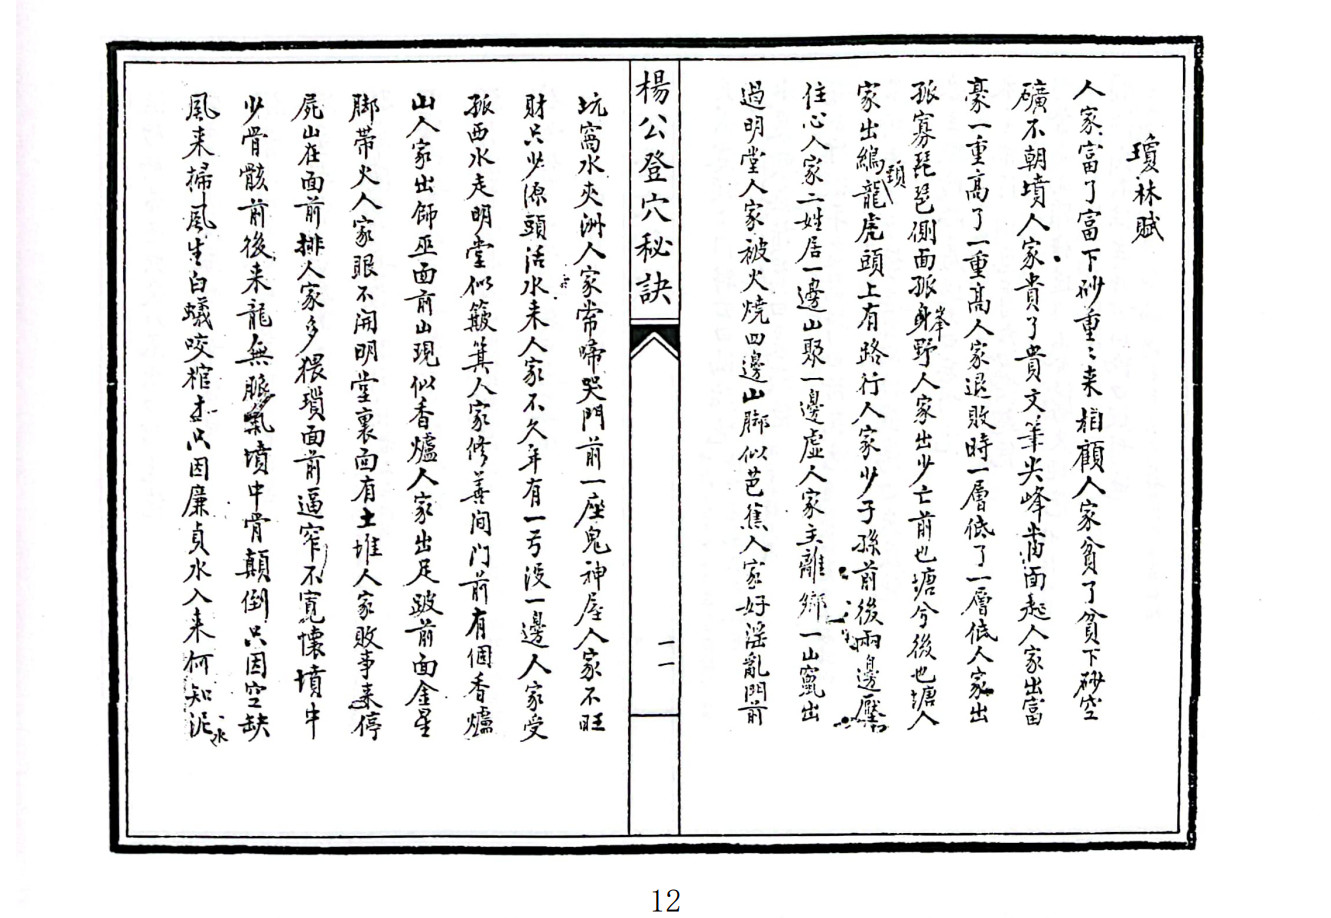 瓊林賦
人家富了富下砂重〻来相顧人家貧了貧下砂空
礦不朝墳人家貴了貴文筆尖峰當面起人家出富
豪一重高了一重高人家退敗時一層低了一層低人家出
孤寡琵琶側面孤身峯野人家出少亡前也塘兮後也塘人
家出鵶頸龍虎頭上有路行人家少子孫前後兩邊壓
住心人家二姓居一邊山聚一邊虛人家主離鄉一山竄出
過明堂人家被火燒四邊山脚似芭蕉人家好淫亂門前
楊公登穴秘訣
一一
坑窩水夾洲人家常啼哭門前一座鬼神屋人家不旺
財只少源頭活水来人家不久年有一亏没一邊人家受
孤西水走明堂似簸箕人家修善间门前有個香爐
山人家出師巫面前山現似香爐人家出足跛前面金星
脚帶火人家眼不開明堂裏面有土堆人家敗事来停
屍山在面前排人家多猥瑣面前逼窄不寬懷墳中
少骨骸前後来龍無脈氣墳中骨顛倒只因空缺
風来掃風生白蟻咬棺木只因廉貞水入来何知泥水
12